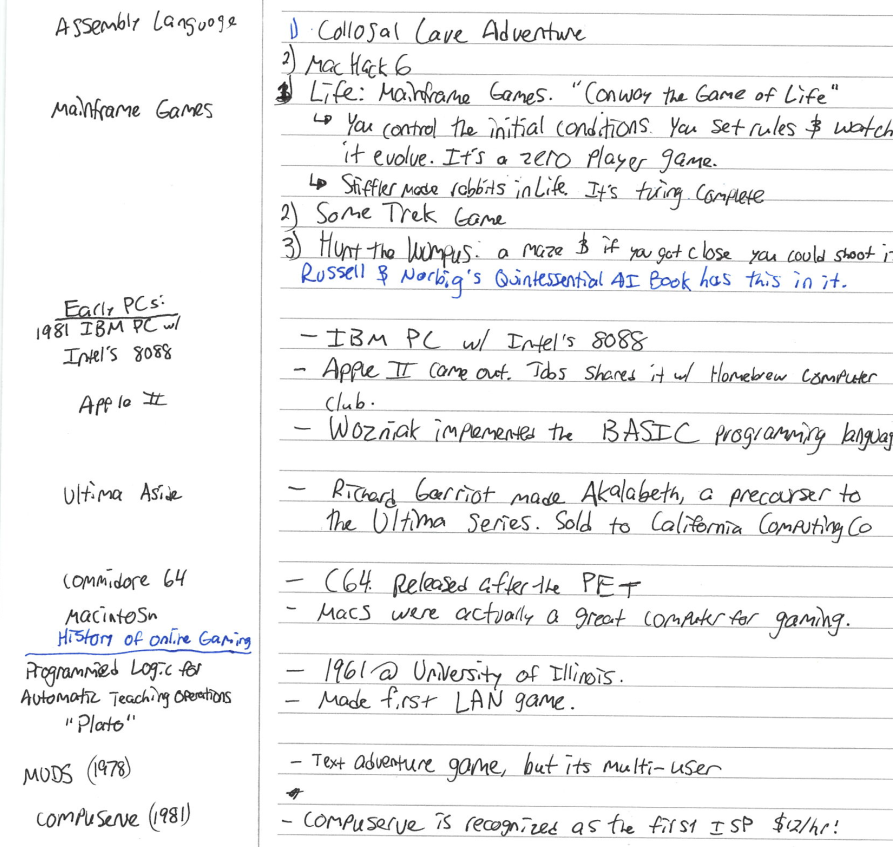 Assembly Language
1) Collosal Cave Adventure
2) Mac Hack 6
Mainframe Games
1) Life: Mainframe Games. "Conway the Game of Life"
↳ You control the initial conditions. You set rules & watch
it evolve. It's a zero player game.
↳ Stiffler made rabbits in Life. It's turing complete
2) Some Trek Game
3) Hunt the Wumpus: a maze & if you got close you could shoot it
Russell & Norbig's Quintessential AI Book has this in it.
Early PCs:
1981 IBM PC w/
Intel's 8088
- IBM PC w/ Intel's 8088
Apple II
- Apple II came out. Jobs shared it w/ Homebrew Computer
club.
- Wozniak implemented the BASIC programming languag
Ultima Aside
- Richard Garriot made Akalabeth, a precourser to
the Ultima series. Sold to California Computing Co
Commidore 64
- C64. Released after the PET
Macintosh
- Macs were actually a great computer for gaming.
History of online Gaming
Programmied Logic for
Automatic Teaching Operations
"Plato"
- 1961 @ University of Illinois.
- Made first LAN game.
MUDS (1978)
- Text adventure game, but its multi-user
Compuserve (1981)
- Compuserve is recognized as the first ISP $12/hr!